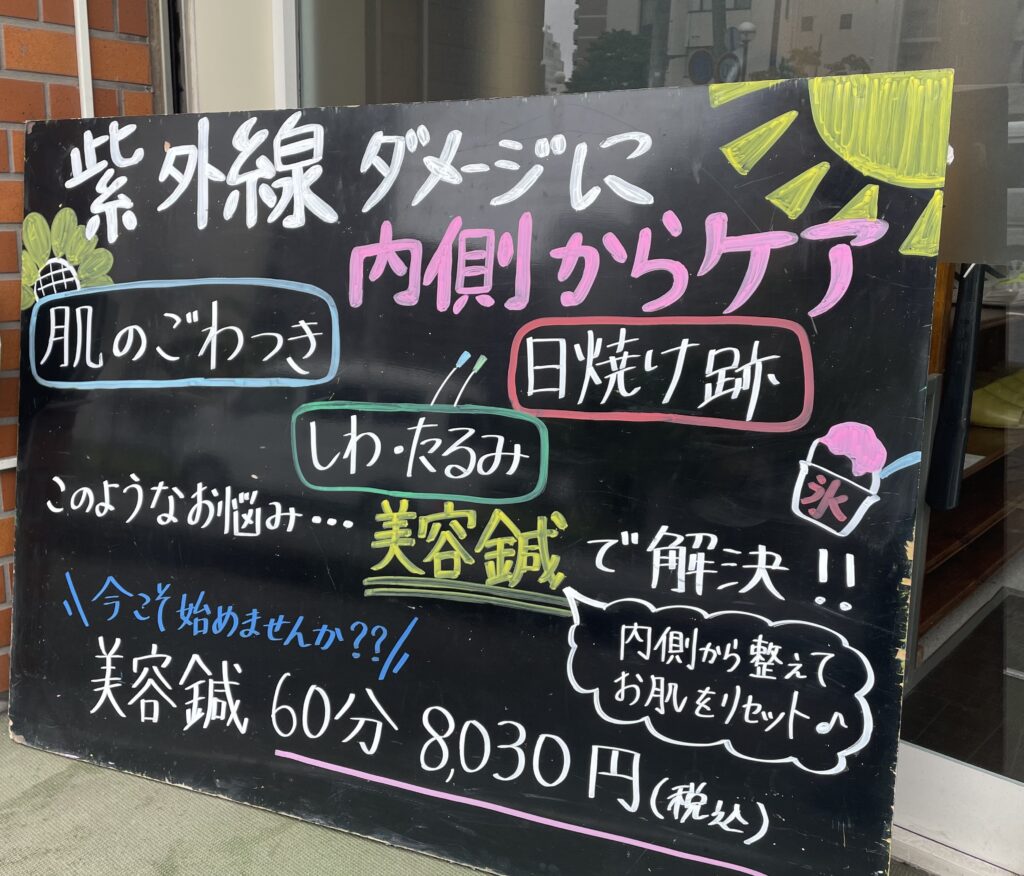 紫外線ダメージに
内側からケア
肌のごわつき
日焼け跡
しわ・たるみ
氷
このようなお悩み…美容鍼で解決!!
今こそ始めませんか??
内側から整えて
お肌をリセット♪
美容鍼 60分 8,030円(税込)